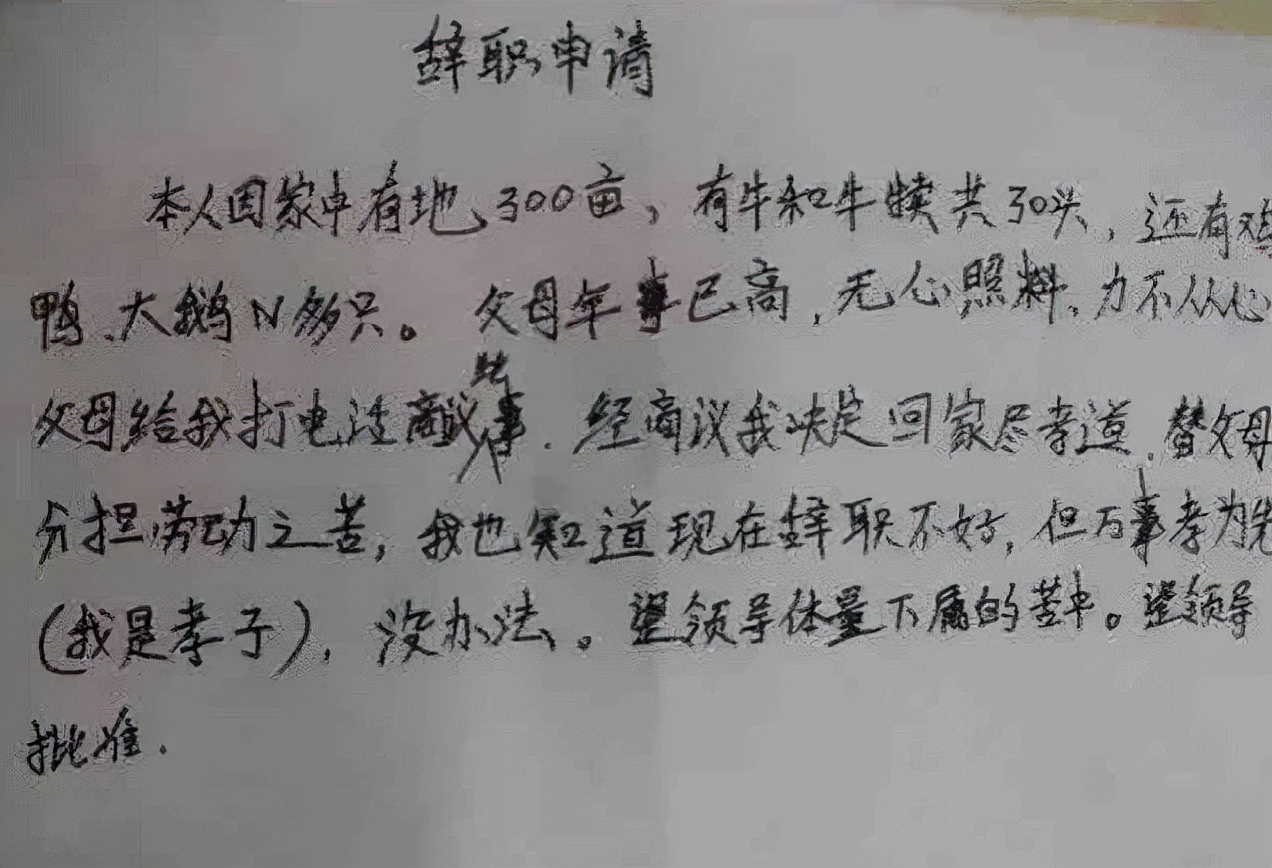 辞职申请
本人因家中有地300亩，有牛和牛犊共30头，还有鸡
鸭、大鹅N多只。父母年事已高，无心照料、力不从心
父母给我打电话商议此事．经商议我决定回家尽孝道．替父母
分担劳动之苦，我也知道现在辞职不好，但万事孝为先
（我是孝子），没办法。望领导体量下属的苦中。望领导
批准．